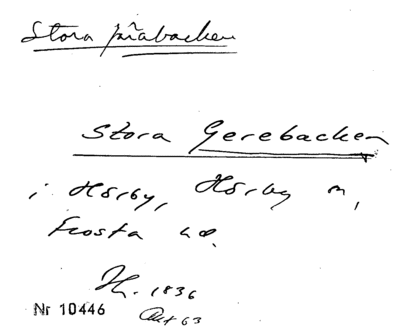 Stora
Stora Gerebacken
i Hörby, Hörby m,
Frosta hd.
H. 1836
Nr 10446
Akt 63